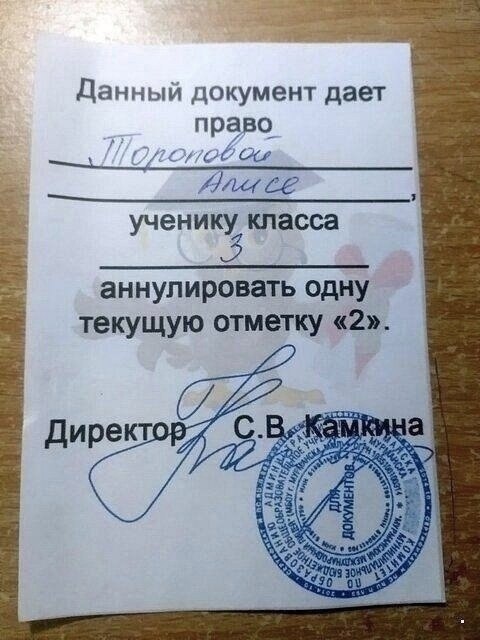 Данный документ дает
право
Тороповой
Алисе,
ученику класса
3
аннулировать одну
текущую отметку «2».
Директор С.В. Камкина
ДЛЯ
ДОКУМЕНТОВ